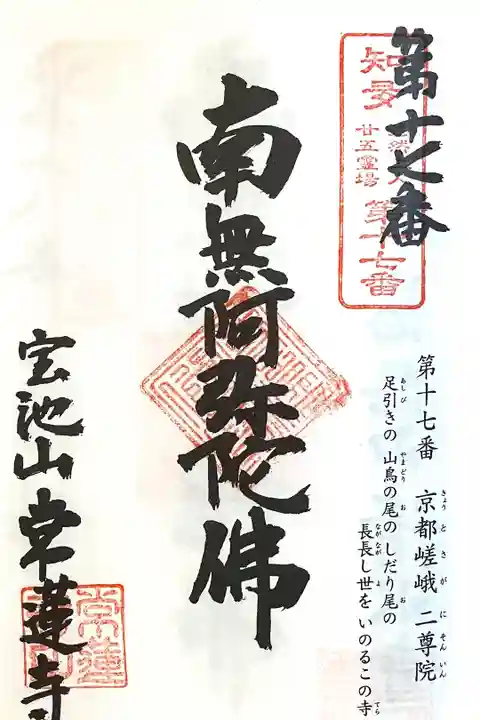 第十七番
知多
法然上人
廿五霊場
第十七番
第十七番 京都嵯峨 二尊院
足引きの 山鳥の尾の しだり尾の
長長し世を いのるこの寺
南無阿弥陀佛
宝池山 常蓮寺
常蓮